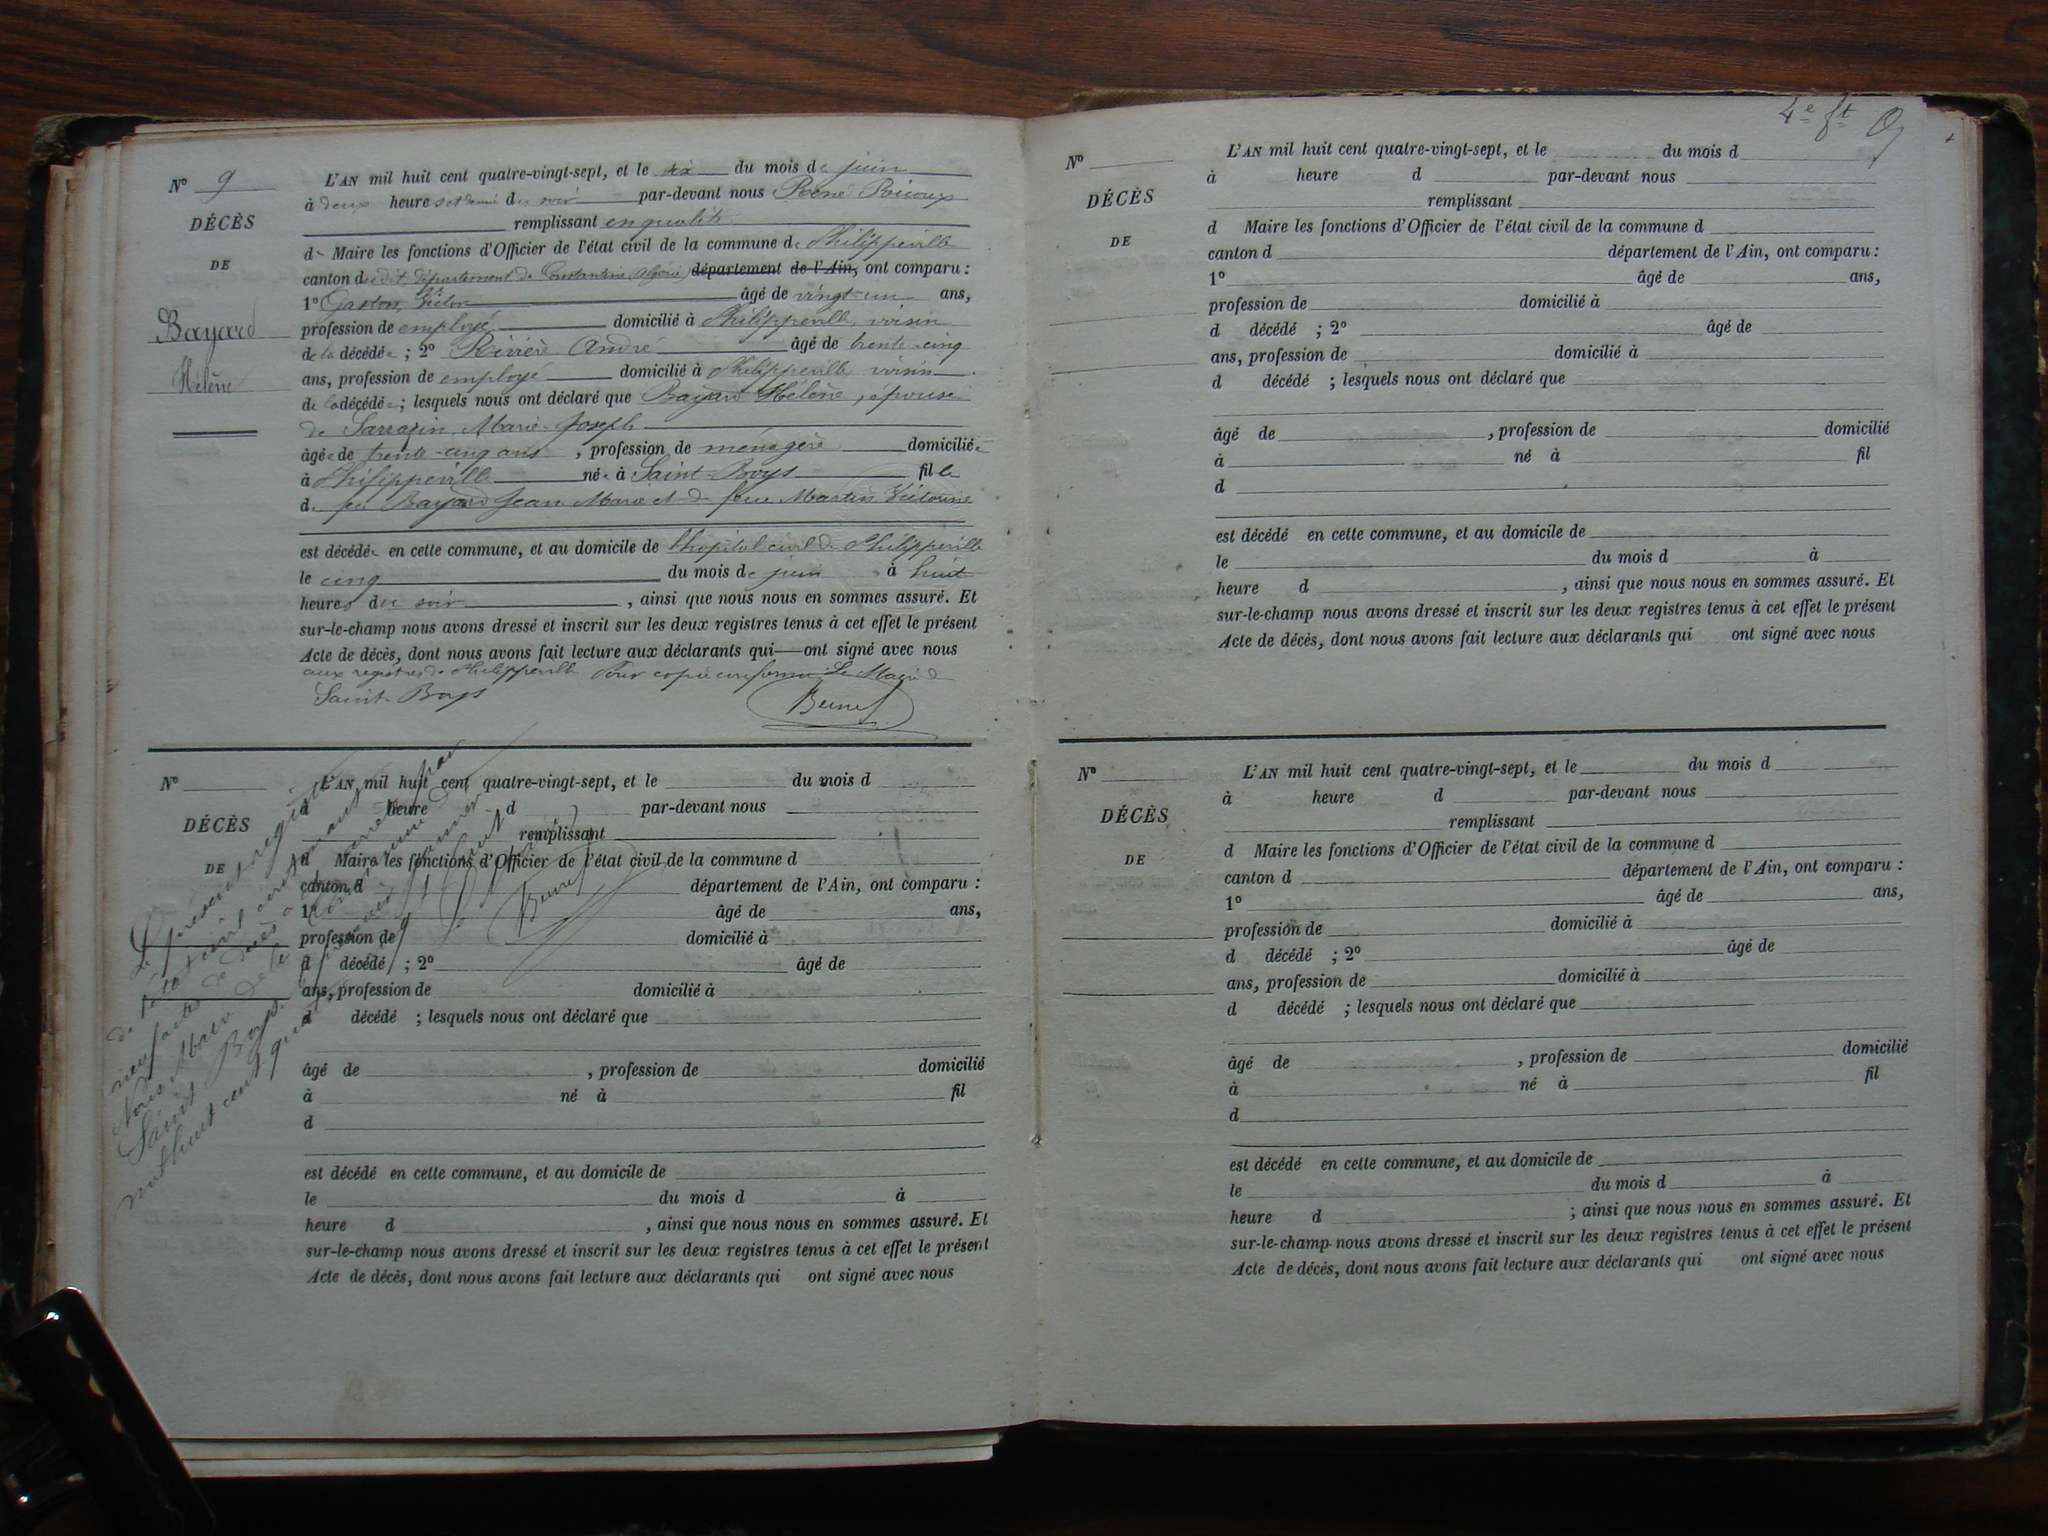 N° 9
DÉCÈS
DE
Bayard
Hélène
L'AN mil huit cent quatre-vingt-sept, et le six du mois de juin
à deux heures et demie du soir par-devant nous René Ricoux
remplissant en qualité
de Maire les fonctions d'Officier de l'état civil de la commune de Philippeville
canton dudit département de Constantine (Algérie) département de l'Ain, ont comparu :
1° Gaston, Victor âgé de vingt-un ans,
profession de employé domicilié à Philippeville, voisin
de la décédée ; 2° Rivière André âgé de trente-cinq
ans, profession de employé domicilié à Philippeville voisin
de la décédée ; lesquels nous ont déclaré que Bayard Hélène, épouse
de Sarrazin, Marie-Joseph
âgée de trente-cinq ans, profession de ménagère domiciliée
à Philippeville née à Saint-Boys fille
de feu Bayard Jean Marie et de feue Martin Victorine
est décédée en cette commune, et au domicile de l'hopital civil de Philippeville
le cinq du mois de juin à huit
heures du soir, ainsi que nous nous en sommes assuré. Et
sur-le-champ nous avons dressé et inscrit sur les deux registres tenus à cet effet le présent
Acte de décès, dont nous avons fait lecture aux déclarants qui — ont signé avec nous
aux registres de Philippeville Pour copie conforme Le Maire de
Saint-Boys
N°
DÉCÈS
DE
L'AN mil huit cent quatre-vingt-sept, et le du mois d
à heure d par-devant nous
remplissant
d Maire les fonctions d'Officier de l'état civil de la commune d
canton d département de l'Ain, ont comparu :
1° âgé de ans,
profession de domicilié à
d décédé ; 2° âgé de
ans, profession de domicilié à
d décédé ; lesquels nous ont déclaré que
âgé de , profession de domicilié
à né à fil
d
est décédé en cette commune, et au domicile de
le du mois d à
heure d , ainsi que nous nous en sommes assuré. Et
sur-le-champ nous avons dressé et inscrit sur les deux registres tenus à cet effet le présent
Acte de décès, dont nous avons fait lecture aux déclarants qui ont signé avec nous
Le présent registre
de l'état civil
neuf actes de décès a
Nous Maire de la Commune de
Saint Boys
mil huit cent
4e ft 9
N°
DÉCÈS
DE
L'AN mil huit cent quatre-vingt-sept, et le du mois d
à heure d par-devant nous
remplissant
d Maire les fonctions d'Officier de l'état civil de la commune d
canton d département de l'Ain, ont comparu :
1° âgé de ans,
profession de domicilié à
d décédé ; 2° âgé de
ans, profession de domicilié à
d décédé ; lesquels nous ont déclaré que
âgé de , profession de domicilié
à né à fil
d
est décédé en cette commune, et au domicile de
le du mois d à
heure d , ainsi que nous nous en sommes assuré. Et
sur-le-champ nous avons dressé et inscrit sur les deux registres tenus à cet effet le présent
Acte de décès, dont nous avons fait lecture aux déclarants qui ont signé avec nous
N°
DÉCÈS
DE
L'AN mil huit cent quatre-vingt-sept, et le du mois d
à heure d par-devant nous
remplissant
d Maire les fonctions d'Officier de l'état civil de la commune d
canton d département de l'Ain, ont comparu :
1° âgé de ans,
profession de domicilié à
d décédé ; 2° âgé de
ans, profession de domicilié à
d décédé ; lesquels nous ont déclaré que
âgé de , profession de domicilié
à né à fil
d
est décédé en cette commune, et au domicile de
le du mois d à
heure d ; ainsi que nous nous en sommes assuré. Et
sur-le-champ nous avons dressé et inscrit sur les deux registres tenus à cet effet le présent
Acte de décès, dont nous avons fait lecture aux déclarants qui ont signé avec nous